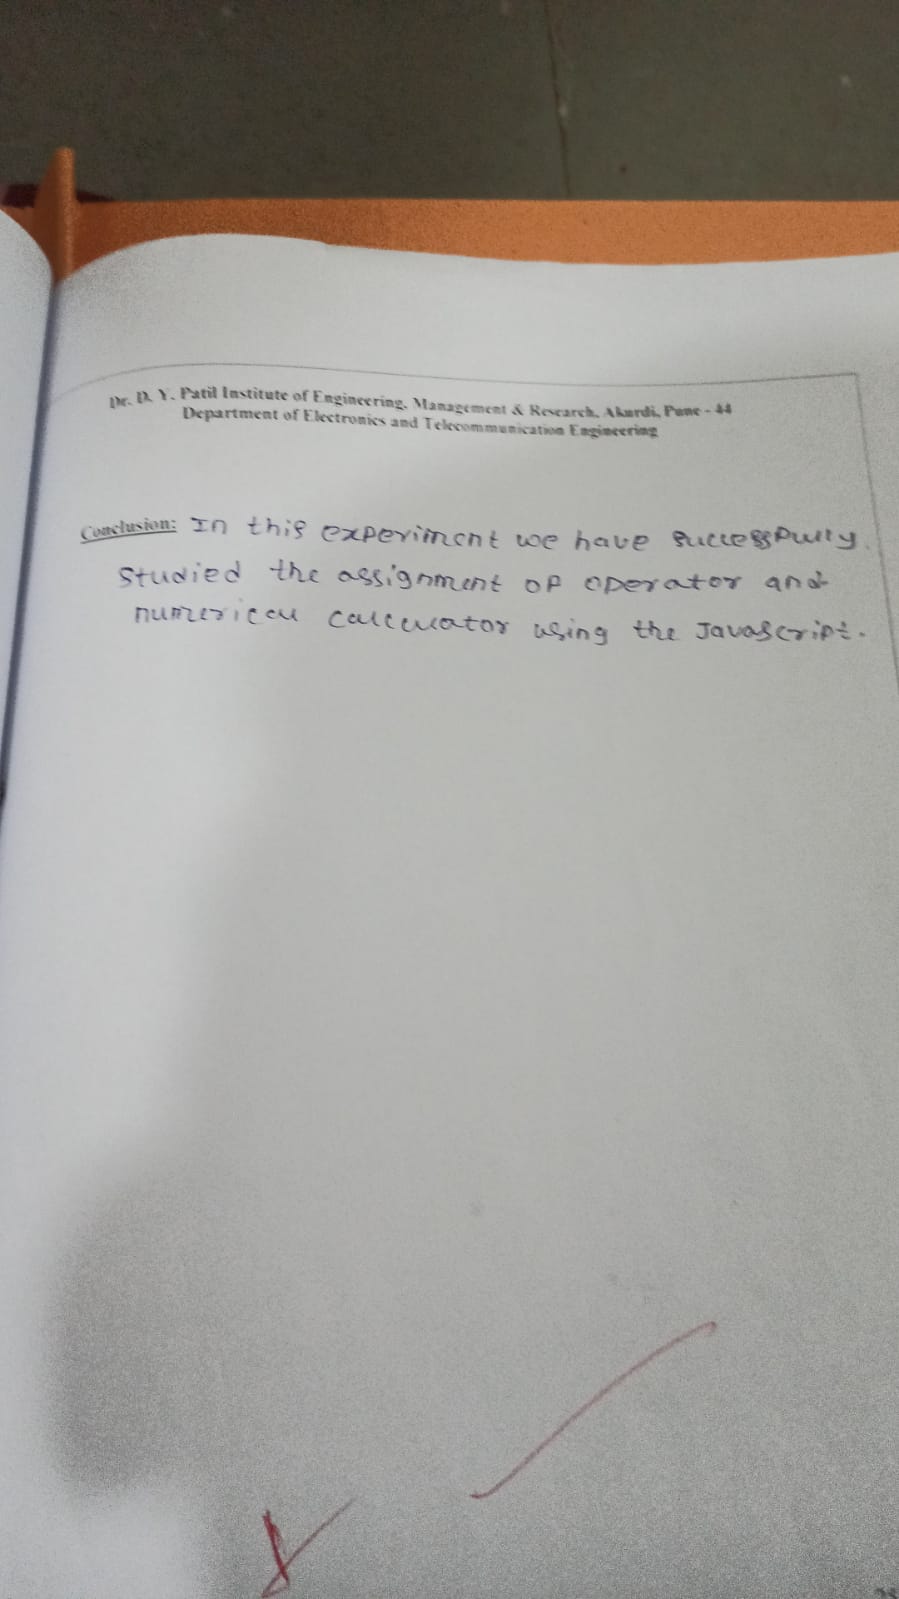 Dr. D. Y. Patil Institute of Engineering, Management & Research, Akurdi, Pune - 44
Department of Electronics and Telecommunication Engineering
Conclusion: In this experiment we have successfully
studied the assignment of operator and
numerical calculator using the Javascript.